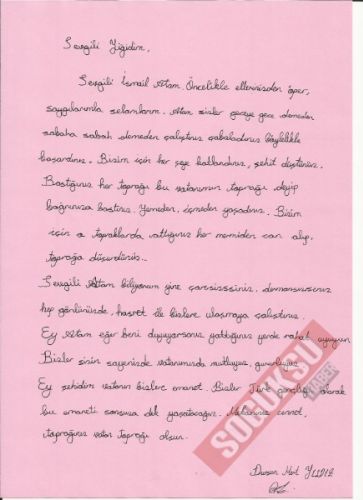 Sevgili Yiğidim,
Sevgili İsmail Atam. Öncelikle ellerinizden öper,
saygılarımla selamlarım. Atam sizler geceye gece demeden
sabaha sabah demeden çalıştınız çabaladınız böylelikle
başardınız. Bizim için her şeye katlandınız, şehit düştünüz.
Bastığınız her toprağı bu vatanımın toprağı deyip
bağrınıza bastınız. Yemeden, içmeden yaşadınız. Bizim
için o topraklarda attığınız her mermiden can alıp,
toprağa düşürdünüz..
Sevgili Atam biliyorum yine çaresizsiniz,
hep gönlünüzde, hasret ile bizlere ulaşmaya çalıştınız.
Ey Atam eğer beni duyuyorsanız yattığınız yerde rahat uyuyun.
Bizler sizin sayenizde vatanımızda mutluyuz, gururluyuz.
Ey şehidim vatanın bizlere emanet. Bizler Türk gençliği olarak
bu emaneti sonsuza dek yaşatacağız. Mekanınız cennet,
toprağınız vatan toprağı olsun.
SOĞUKSU
HABER
Dursun YILDIZ